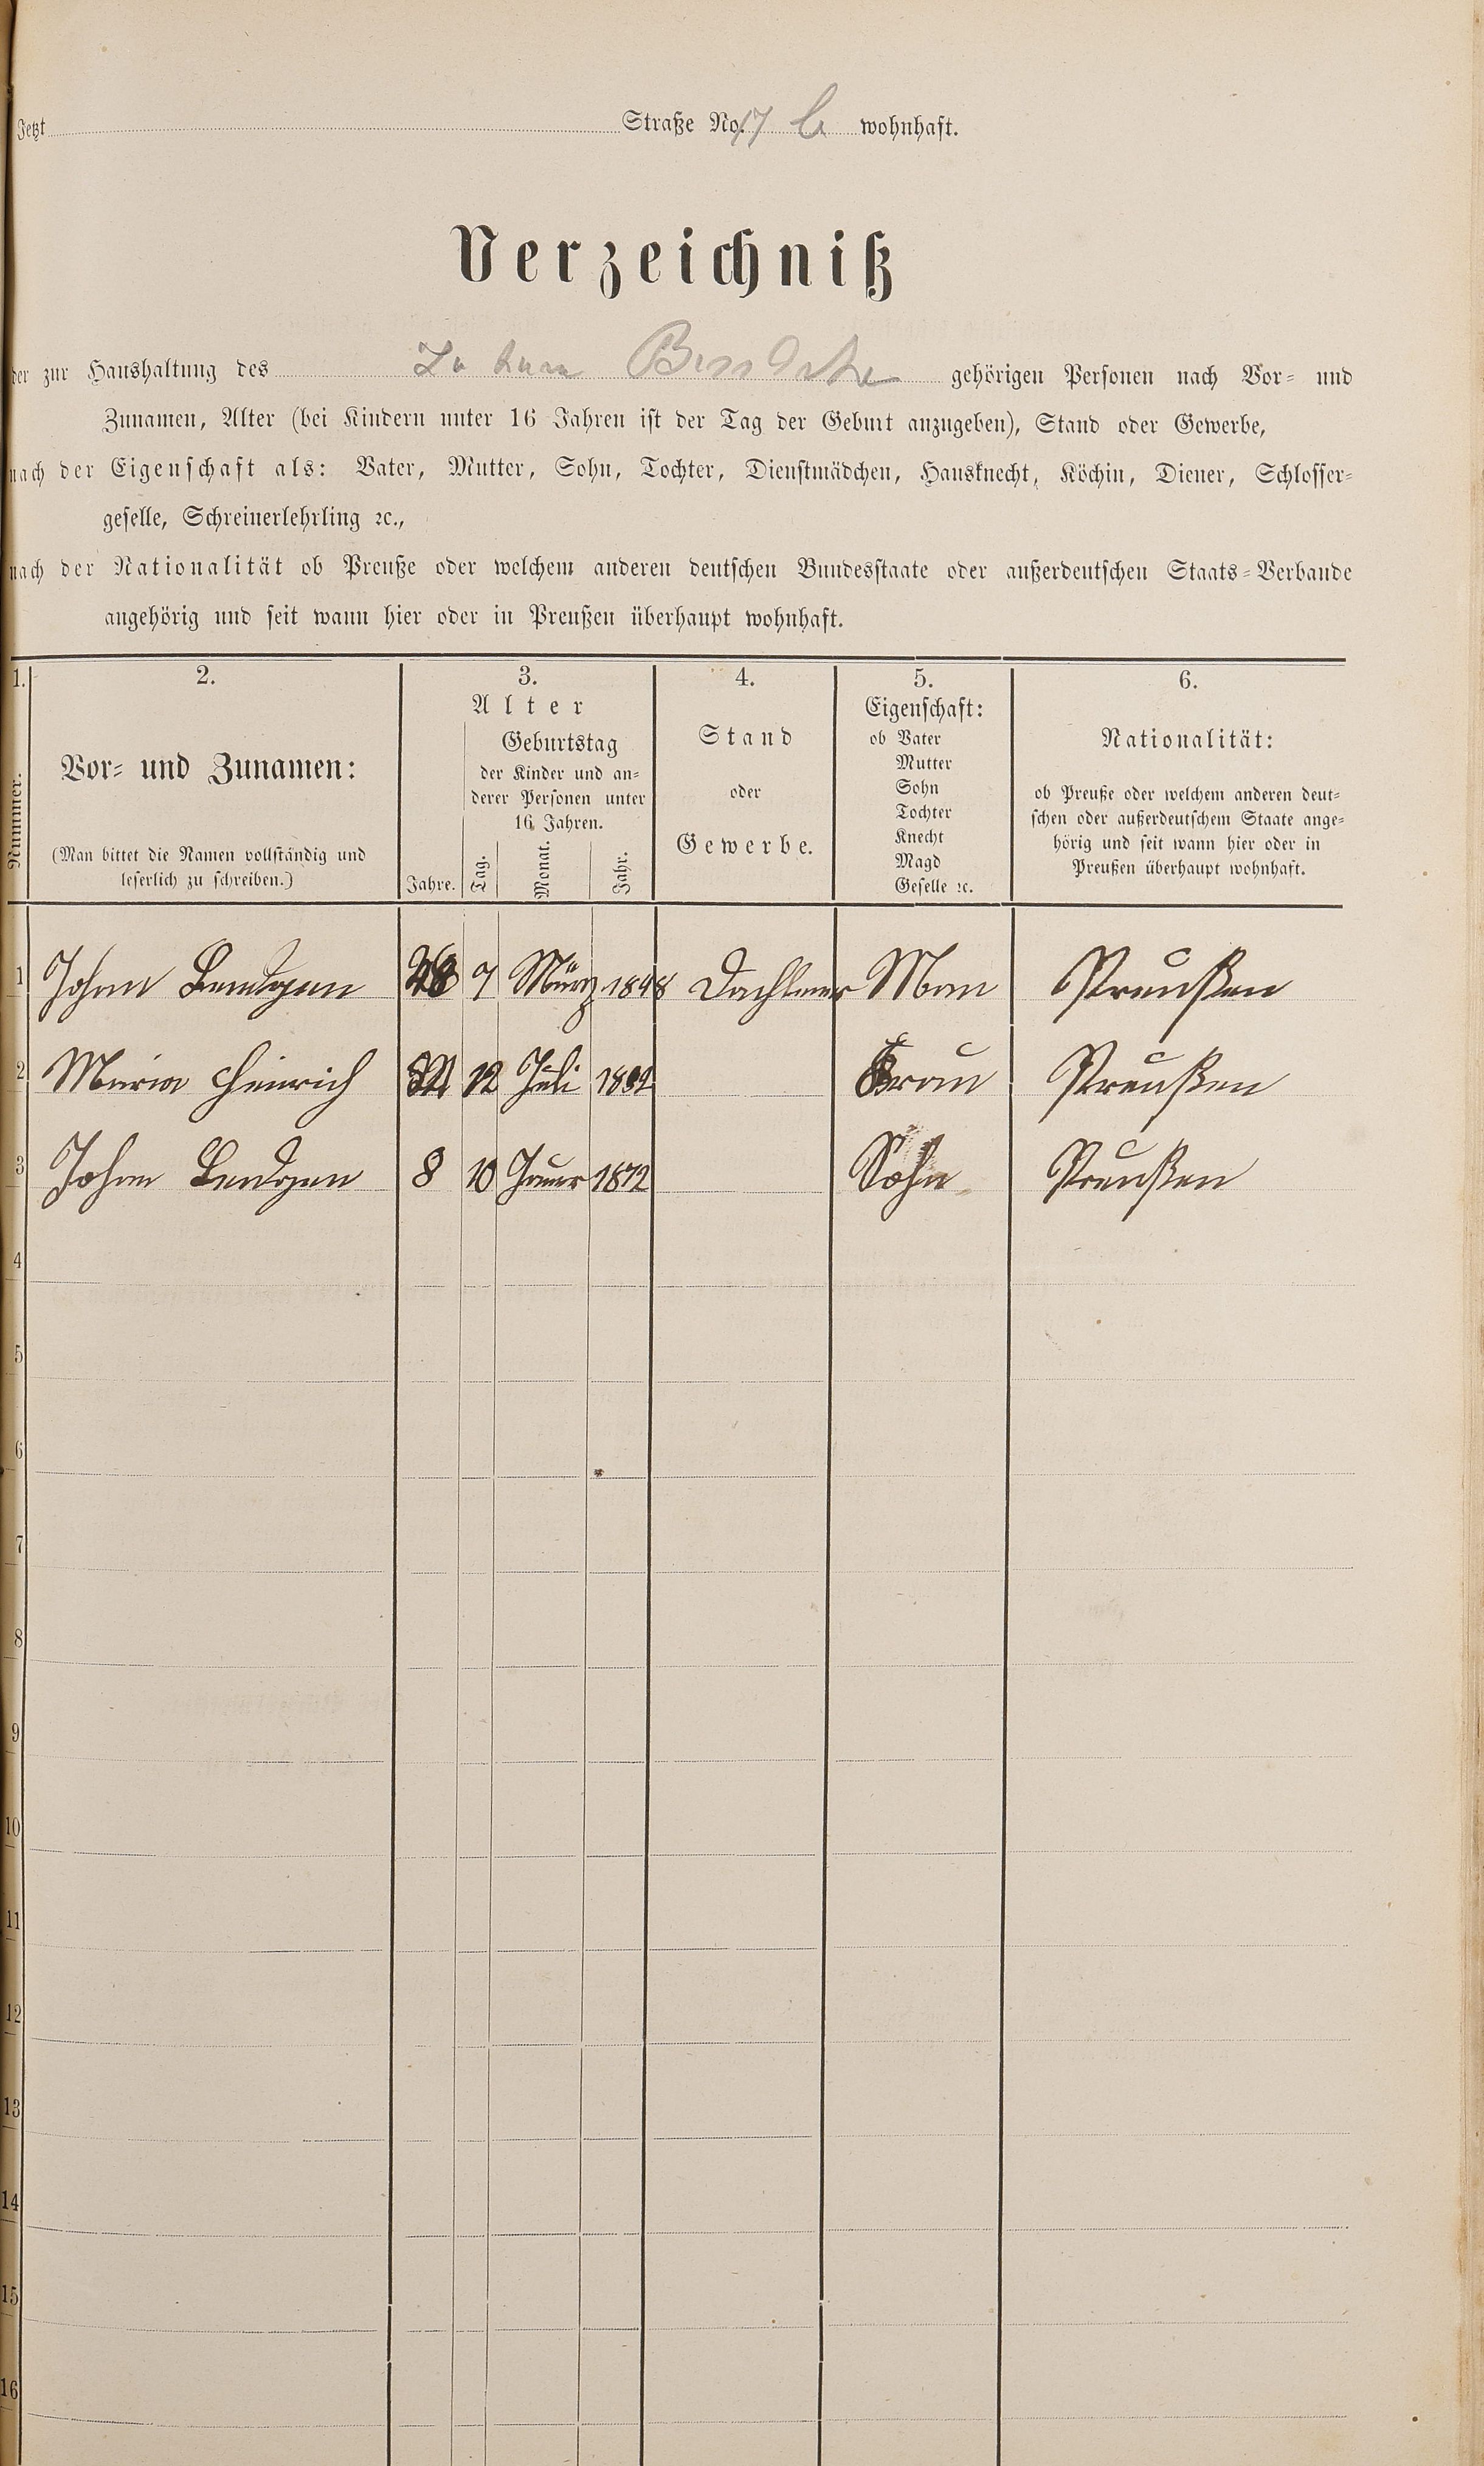 Jetzt Straße No. 17 b wohnhaft.
Verzeichniß
der zur Haushaltung des gehörigen Personen nach Vor- und
Zunamen, Alter (bei Kindern unter 16 Jahren ist der Tag der Geburt anzugeben), Stand oder Gewerbe,
nach der Eigenschaft als: Vater, Mutter, Sohn, Tochter, Dienstmädchen, Hausknecht, Köchin, Diener, Schlosser-
geselle, Schreinerlehrling ꝛc.,
nach der Nationalität ob Preuße oder welchem anderen deutschen Bundesstaate oder außerdeutschen Staats-Verbande
angehörig und seit wann hier oder in Preußen überhaupt wohnhaft.
1.
Nummer.
2.
Vor- und Zunamen:
(Man bittet die Namen vollständig und
leserlich zu schreiben.)
3.
Alter
Geburtstag
der Kinder und an-
derer Personen unter
16 Jahren.
Jahre. Tag. Monat. Jahr.
4.
Stand
oder
Gewerbe.
5.
Eigenschaft:
ob Vater
Mutter
Sohn
Tochter
Knecht
Magd
Geselle ꝛc.
6.
Nationalität:
ob Preuße oder welchem anderen deut-
schen oder außerdeutschem Staate ange-
hörig und seit wann hier oder in
Preußen überhaupt wohnhaft.
1 Johan Bendgen 7 März 1848 Man Preußen
2 Maria Heinrich 12 Juli Frau Preußen
3 Johan Bendgen 8 10 Januar 1872 Sohn Preußen
4
5
6
7
8
9
10
11
12
13
14
15
16